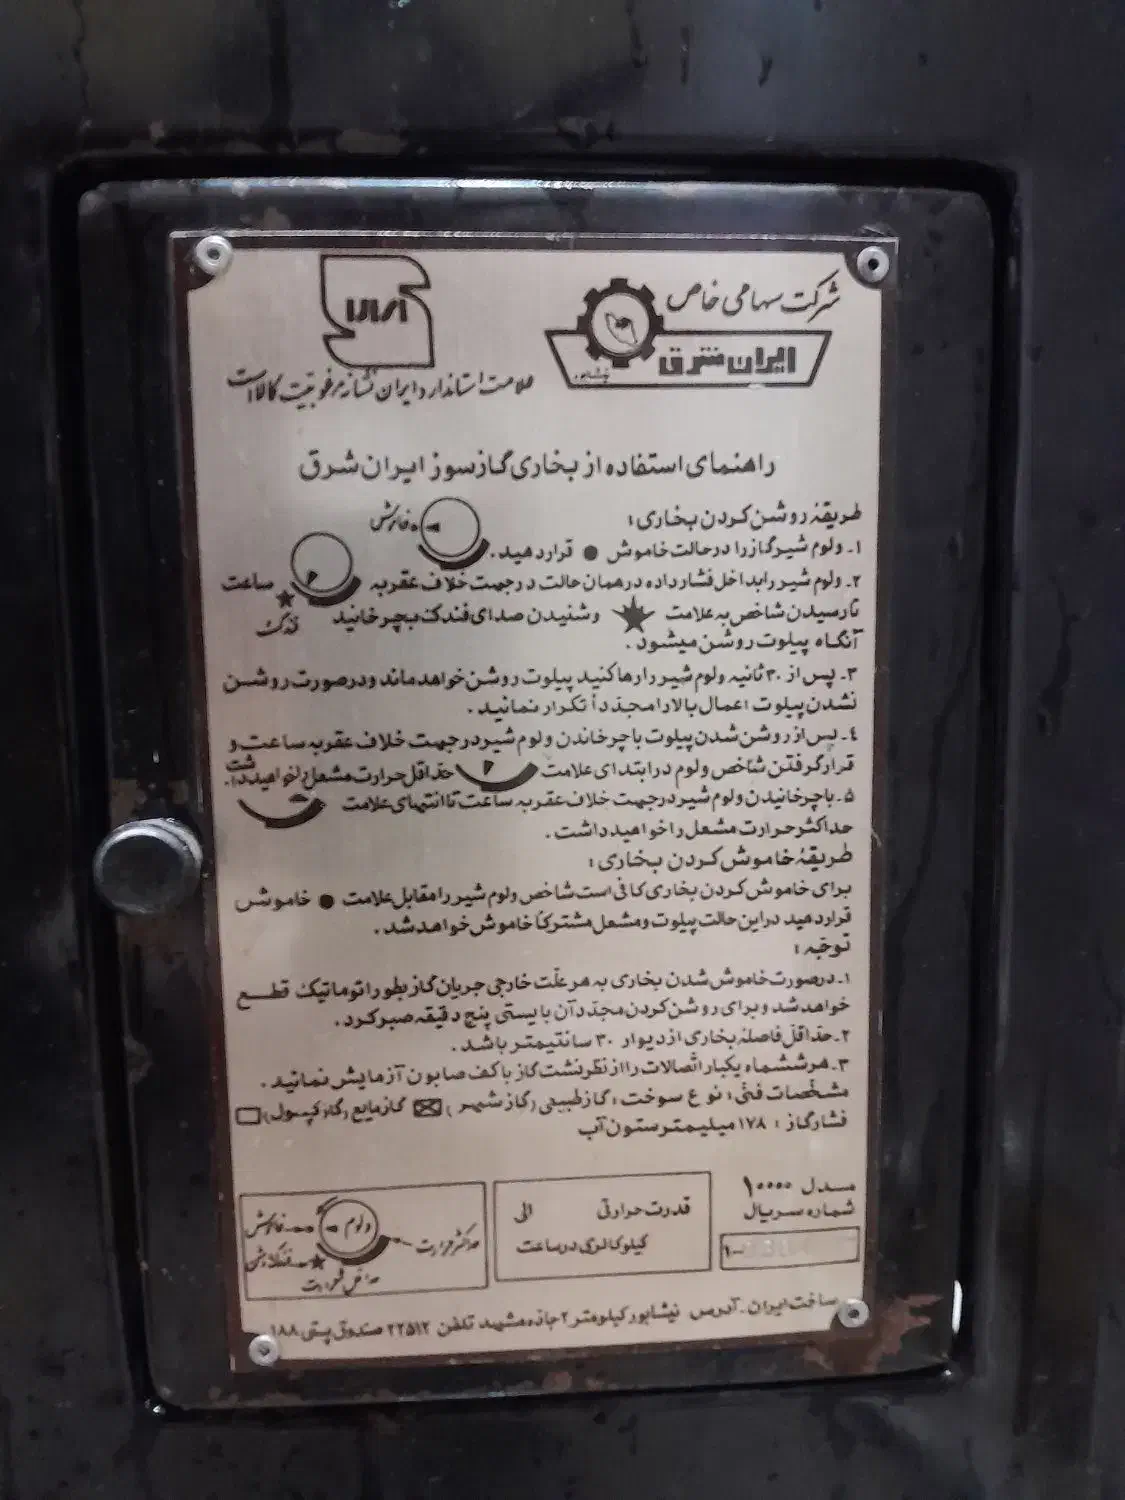 شرکت سهامی خاص
ایران شرق
نیشابور
علامت استاندارد ایران نشانه مرغوبیت کالا است
راهنمای استفاده از بخاری گازسوز ایران شرق
طریقهٔ روشن کردن بخاری:
خاموش
۱ـ ولوم شیر گاز را در حالت خاموش ● قرار دهید.
۲ـ ولوم شیر را بداخل فشار داده در همان حالت در جهت خلاف عقربه ساعت
تا رسیدن شاخص به علامت ★ و شنیدن صدای فندک بچرخانید
فندک
آنگاه پیلوت روشن میشود.
۳ـ پس از ۳۰ ثانیه ولوم شیر را رها کنید پیلوت روشن خواهد ماند و در صورت روشن
نشدن پیلوت اعمال بالا را مجدّداً تکرار نمائید.
٤ـ پس از روشن شدن پیلوت با چرخاندن ولوم شیر در جهت خلاف عقربه ساعت و
قرار گرفتن شاخص ولوم در ابتدای علامت حدّاقل حرارت مشعل را خواهید داشت.
۵ـ با چرخانیدن ولوم شیر در جهت خلاف عقربه ساعت تا انتهای علامت
حداکثر حرارت مشعل را خواهید داشت.
طریقهٔ خاموش کردن بخاری:
برای خاموش کردن بخاری کافی است شاخص ولوم شیر را مقابل علامت ● خاموش
قرار دهید در این حالت پیلوت و مشعل مشترکاً خاموش خواهد شد.
توجّه:
۱ـ در صورت خاموش شدن بخاری به هر علّت خارجی جریان گاز بطور اتوماتیک قطع
خواهد شد و برای روشن کردن مجدّد آن بایستی پنج دقیقه صبر کرد.
۲ـ حدّاقل فاصلهٔ بخاری از دیوار ۳۰ سانتیمتر باشد.
۳ـ هر ششماه یکبار اتّصالات را از نظر نشت گاز با کف صابون آزمایش نمائید.
مشخّصات فنّی: نوع سوخت: گاز طبیعی (گاز شهر) ☒ گاز مایع (گاز کپسول) ☐
فشار گاز: ۱۷۸ میلیمتر ستون آب
مدل ۱۰۰۰۰
شماره سریال
قدرت حرارتی الی
کیلوکالری در ساعت
ولوم
خاموش
حداکثر حرارت
فندک
حداقل حرارت
ساخت ایران ـ آدرس نیشابور کیلومتر ۲ جاده مشهد تلفن ۲۲۵۱۲ صندوق پستی ۱۸۸